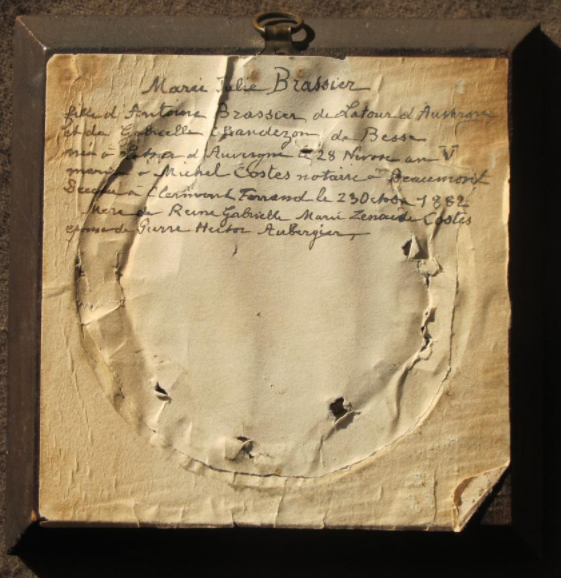 Marie Julie Brassier
fille d'Antoine Brassier de Latour d'Auvergne
et de Gabrielle Chandezon de Besse
née à Latour d'Auvergne le 28 Nivose an V
mariée à Michel Costes notaire à Beaumont
Décédée à Clermont Ferrand le 23 Octobre 1882
Mère de Reine Gabrielle Marie Zenaïde Costes
épouse de Pierre Hector Aubergier